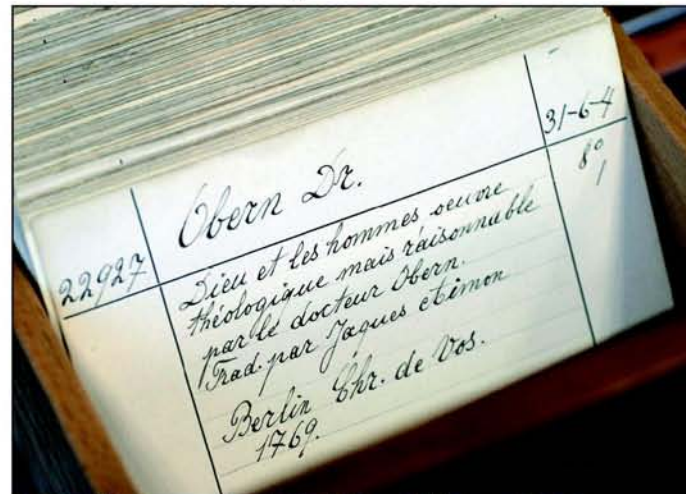 31-6-4
Obern Dr.
8º
1
22927
Dieu et les hommes oeuvre
théologique mais raisonnable
par le docteur Obern.
Trad. par Jaques
Berlin Chr. de Vos.
1769.